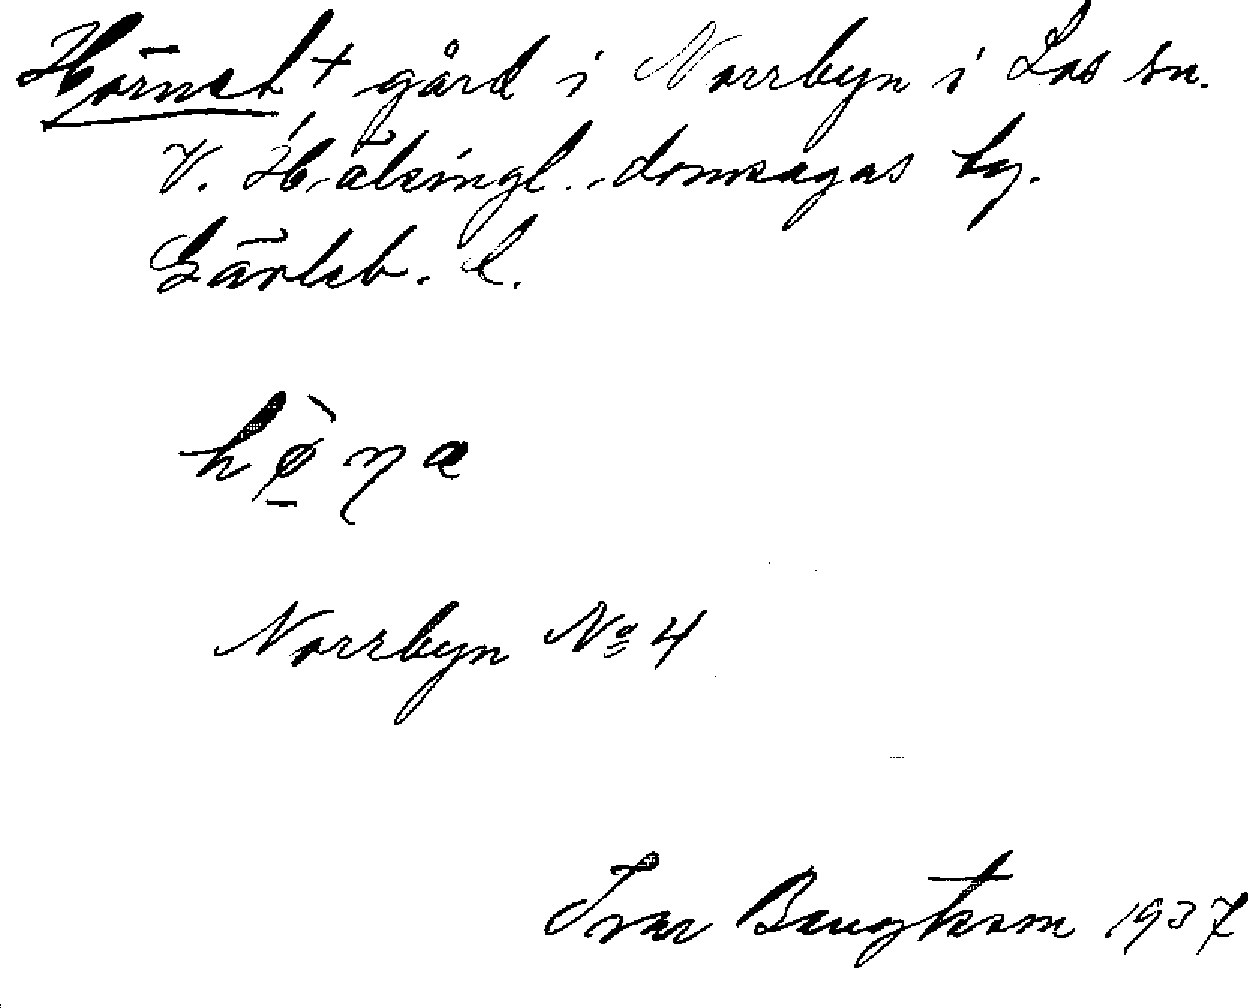 Hörnet + gård i Norrbyn i Los sn.
V. Hälsingl. domsagas tg.
Gävleb. l.
hø̠̀ɳa
Norrbyn Nº 4
Ivar Bengtsson 1937